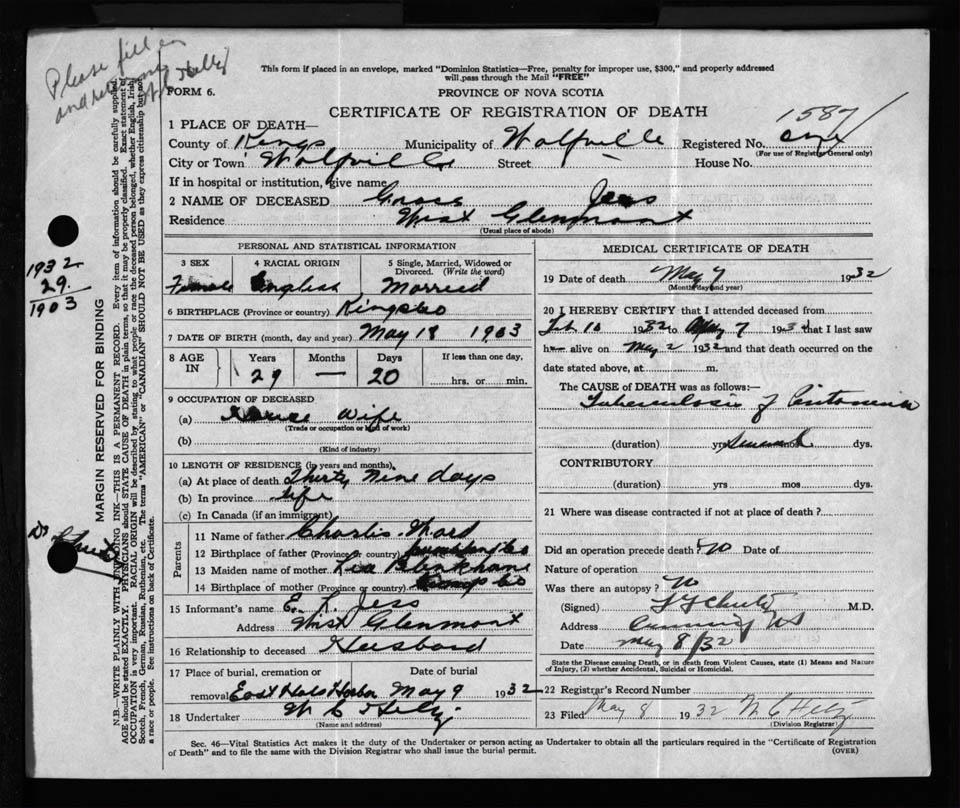 Please fill in
and return
This form if placed in an envelope, marked "Dominion Statistics—Free, penalty for improper use, $300," and properly addressed
will pass through the Mail "FREE"
FORM 6.
PROVINCE OF NOVA SCOTIA
CERTIFICATE OF REGISTRATION OF DEATH
1587
1 PLACE OF DEATH—
County of Kings Municipality of Wolfville Registered No.
(For use of Registrar General only)
City or Town Wolfville Street — House No.
If in hospital or institution, give name
2 NAME OF DECEASED Grace Jess
Residence West Glenmont
(Usual place of abode)
PERSONAL AND STATISTICAL INFORMATION
3 SEX 4 RACIAL ORIGIN 5 Single, Married, Widowed or Divorced. (Write the word)
Female English Married
6 BIRTHPLACE (Province or country) Kings Co
7 DATE OF BIRTH (month, day and year) May 18 1903
8 AGE IN Years Months Days If less than one day,
29 — 20 hrs. or min.
9 OCCUPATION OF DECEASED
(a) House Wife
(Trade or occupation or kind of work)
(b)
(Kind of industry)
10 LENGTH OF RESIDENCE (in years and months).
(a) At place of death Thirty Nine days
(b) In province life
(c) In Canada (if an immigrant)
Parents
11 Name of father Charlis Ward
12 Birthplace of father (Province or country)
13 Maiden name of mother
14 Birthplace of mother (Province or country)
15 Informant's name E. R. Jess
Address West Glenmont
16 Relationship to deceased Husband
17 Place of burial, cremation or removal Date of burial
East Halls Harbor May 9 1932
18 Undertaker
(Name and address)
MEDICAL CERTIFICATE OF DEATH
19 Date of death May 7 1932
(Month, day and year)
20 I HEREBY CERTIFY that I attended deceased from
Feb 10 1932 to May 7 1932 that I last saw
h alive on May 2 1932 and that death occurred on the
date stated above, at m.
The CAUSE of DEATH was as follows:—
Tuberculosis of
(duration) yrs mos dys.
CONTRIBUTORY
(duration) yrs mos dys.
21 Where was disease contracted if not at place of death?
Did an operation precede death? No Date of
Nature of operation
Was there an autopsy? No
(Signed) M.D.
Address Canning NS
Date May 8/32
State the Disease causing Death, or in death from Violent Causes, state (1) Means and Nature
of Injury, (2) whether Accidental, Suicidal or Homicidal.
22 Registrar's Record Number
23 Filed May 8 1932
(Division Registrar)
Sec. 46—Vital Statistics Act makes it the duty of the Undertaker or person acting as Undertaker to obtain all the particulars required in the "Certificate of Registration
of Death" and to file the same with the Division Registrar who shall issue the burial permit.
(OVER)
1932
29
1903
MARGIN RESERVED FOR BINDING
N.B.—WRITE PLAINLY WITH UNFADING INK—THIS IS A PERMANENT RECORD. Every item of information should be carefully supplied.
AGE should be stated EXACTLY. PHYSICIANS should STATE CAUSE OF DEATH in plain terms, so that it may be properly classified. Exact statement of
OCCUPATION is very important. RACIAL ORIGIN will be described by stating to what people or race the deceased person belonged, whether English, Irish,
Scotch, French, German, Russian, Ruthenian, etc. The terms "AMERICAN" or "CANADIAN" SHOULD NOT BE USED as they express citizenship but not
a race or people. See instructions on back of Certificate.